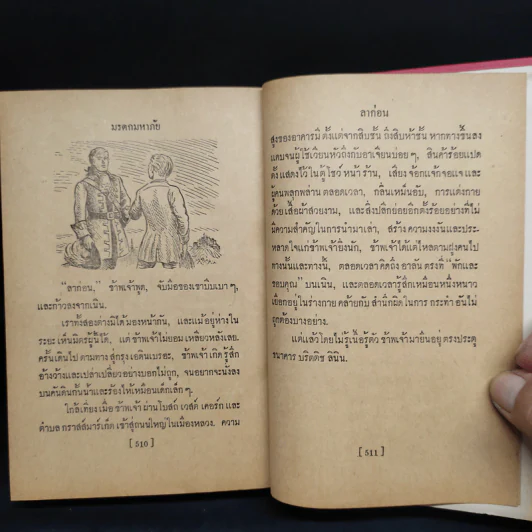 มรดกมหาภัย
"ลาก่อน," ข้าพเจ้าพูด, จับมือของเขาบีบเบา ๆ,
และก้าวลงจากเนิน.
เราทั้งสองต่างมิได้มองหน้ากัน, และแม้อยู่ห่างใน
ระยะเห็นมิตรผู้นี้ได้, แต่ข้าพเจ้าไม่ยอมเหลียวหลังเลย.
ครั้นเดินไปตามทางสู่กรุงเอดินเบอระ, ข้าพเจ้าเกิดรู้สึก
อ้างว้างและเปล่าเปลี่ยวอย่างบอกไม่ถูก, จนอยากจะนั่งลง
บนคันดินกั้นน้ำและร้องไห้เหมือนเด็กเล็ก ๆ.
ใกล้เที่ยงเมื่อข้าพเจ้าผ่านโบสถ์เวสต์ เคอร์ก และ
ตำบลกราสส์มาร์เก็ต เข้าสู่ถนนใหญ่ในเมืองหลวง. ความ
[ 510 ]
ลาก่อน
สูงของอาคารมีตั้งแต่จากสิบชั้นถึงสิบห้าชั้น หากทางขึ้นลง
แคบจนผู้ใช้เวียนหัวถึงกับอาเจียนบ่อย ๆ, สินค้าร้อยแปด
ตั้งแสดงไว้ในตู้โชว์หน้าร้าน, เสียงจ้อกแจ้กจอแจและ
ผู้คนพลุกพล่านตลอดเวลา, กลิ่นเหม็นอับ, การแต่งกาย
ด้วยเสื้อผ้าสวยงาม, และสิ่งปลีกย่อยอีกตั้งร้อยอย่างที่ไม่
มีความสำคัญในการนำมาเล่า, สร้างความงงงันและประ-
หลาดใจแก่ข้าพเจ้ายิ่งนัก, ข้าพเจ้าได้แต่ไหลตามฝูงคนไป
ทางนั้นและทางนี้, ตลอดเวลาคิดถึงอาลันตรงที่ "พักและ
ขอบคุณ" บนเนิน, และตลอดเวลารู้สึกเหมือนหนึ่งหนาว
เยือกอยู่ในร่างกายคล้ายกับสำนึกผิดในการกระทำอันไม่
ถูกต้องบางอย่าง.
แต่แล้วโดยไม่รู้เนื้อรู้ตัว ข้าพเจ้ามายืนอยู่ตรงประตู
ธนาคาร บริติซ ลินิน.
[ 511 ]